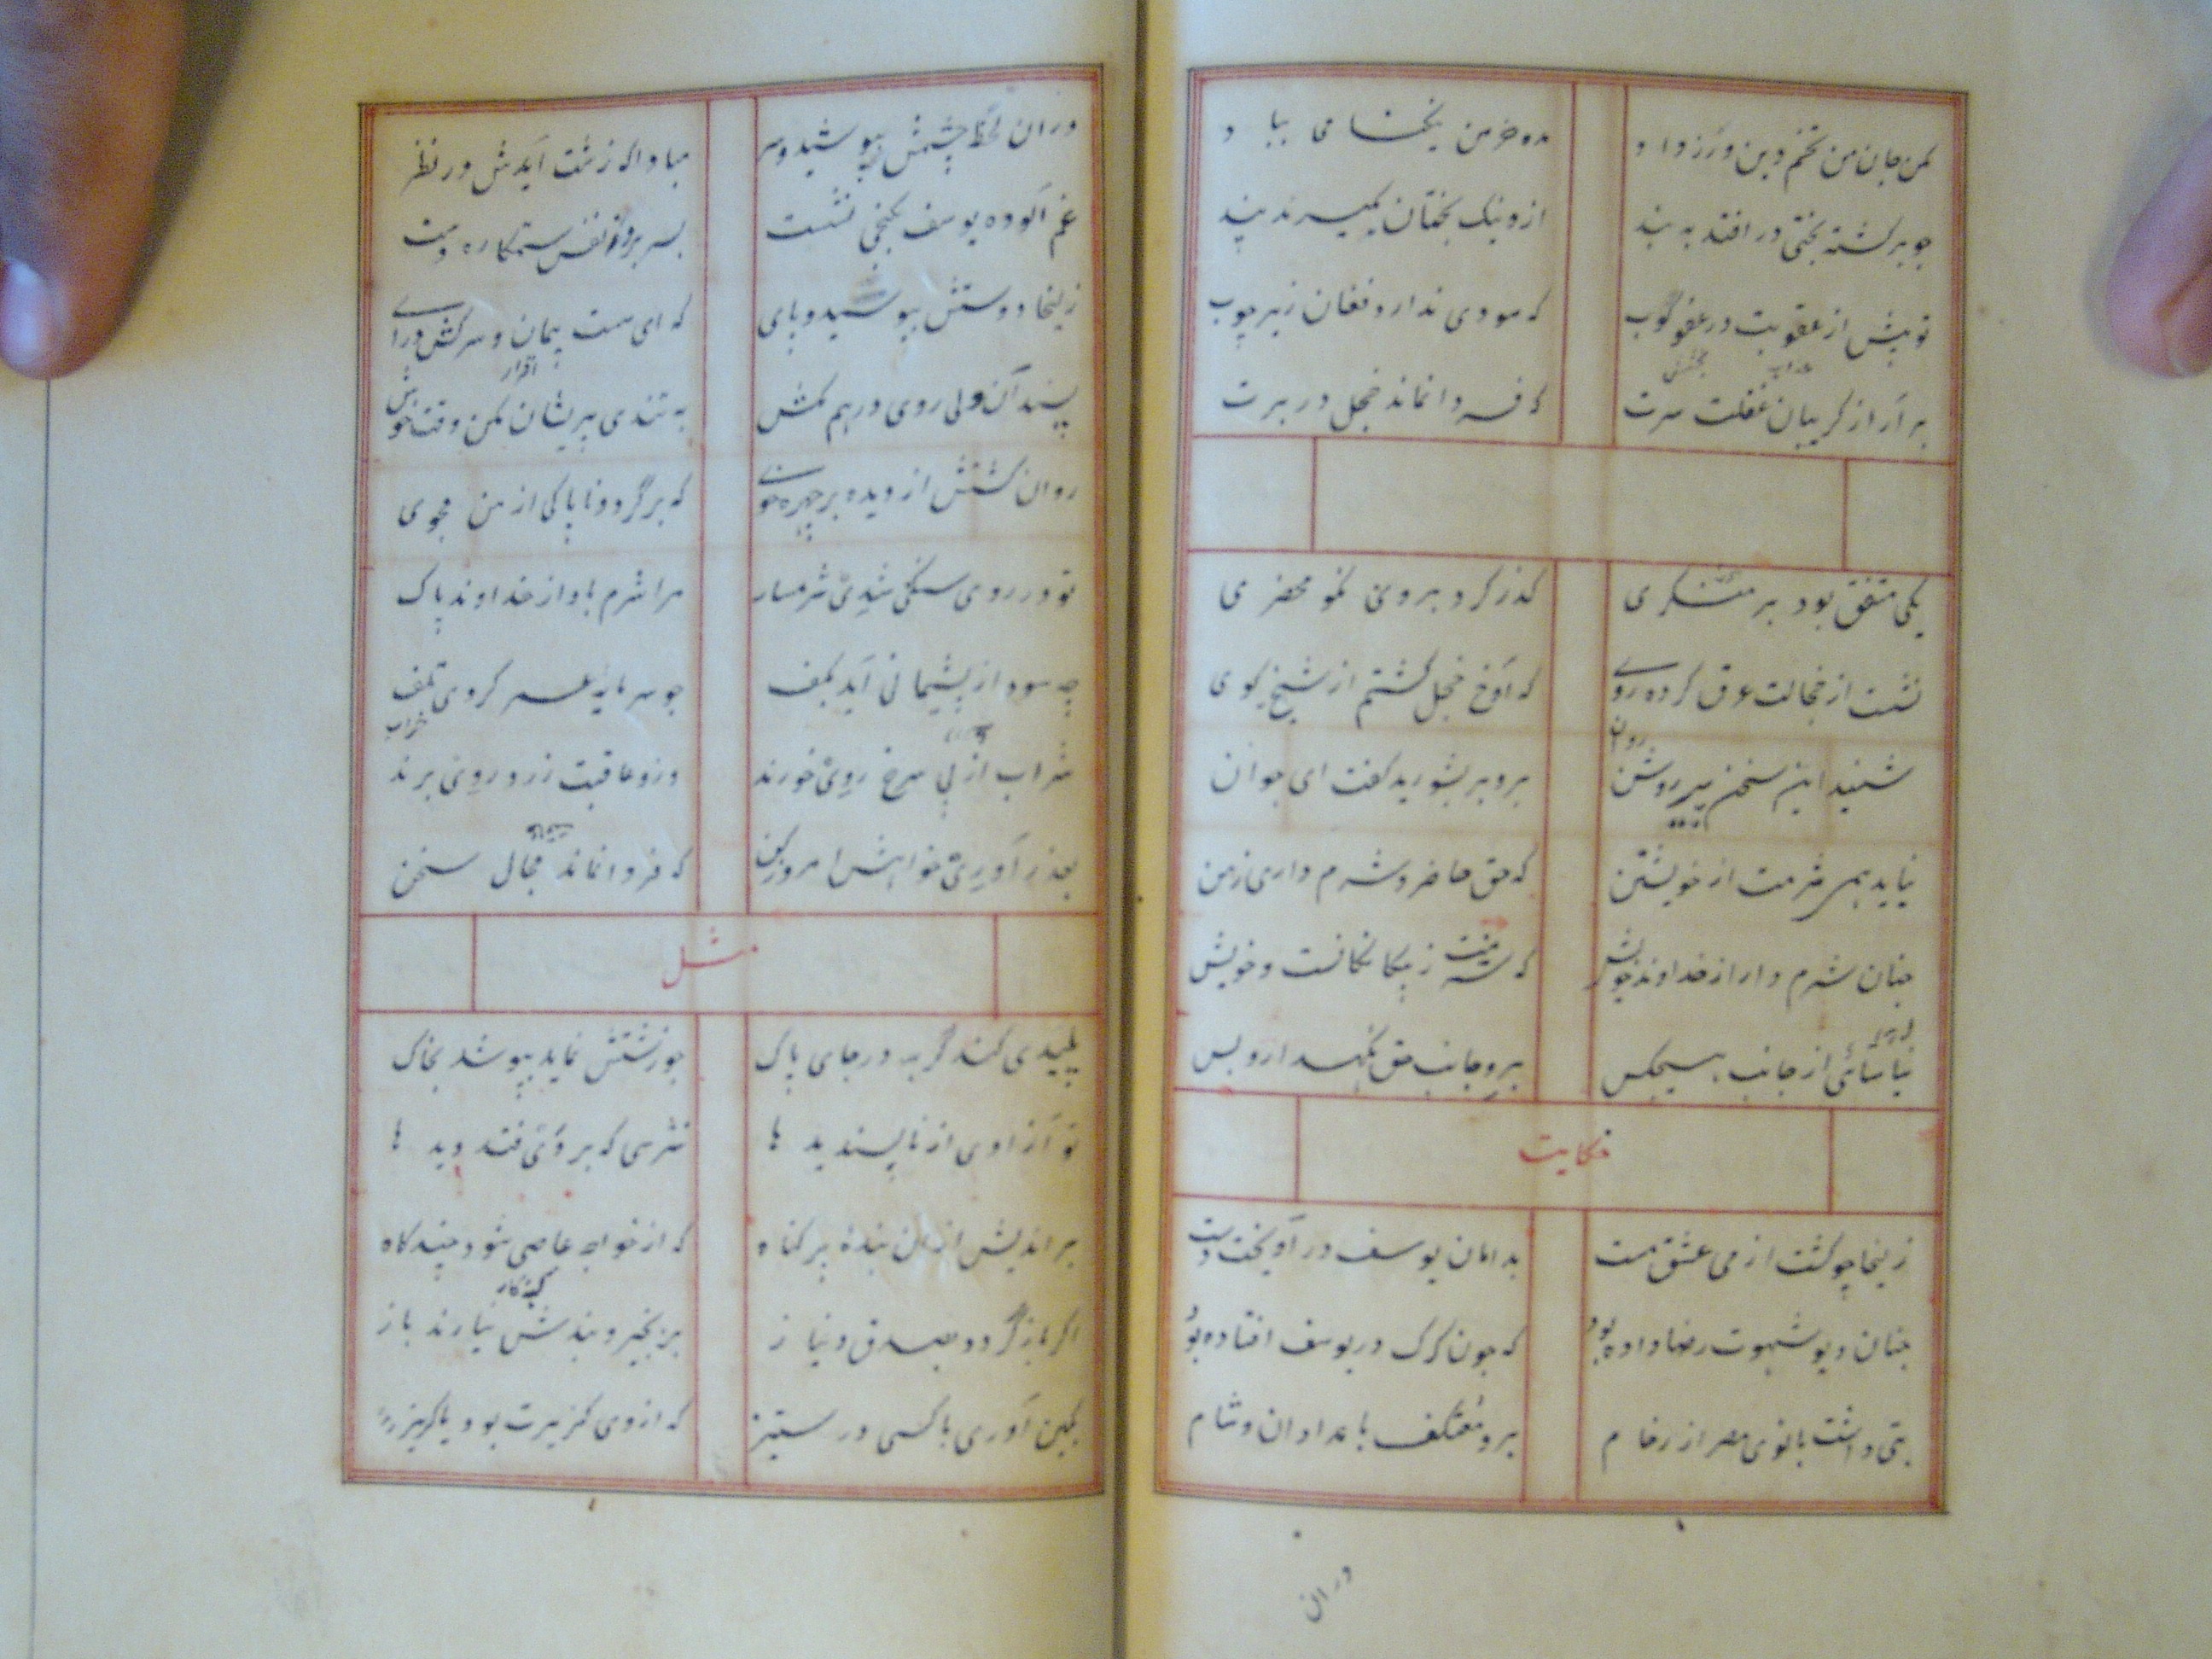 مکن جان من تخم دین ورز و داد مده خرمن نیکنامی بباد
چو برگشته بختی در افتد به بند ازو نیک بختان بگیرند پند
تو پیش از عقوبت در عفو کوب که سودی ندارد فغان زیر چوب
بر آر از گریبان غفلت سرت که فردا نماند خجل در برت
یکی متفق بود بر منکری گذر کرد بر وی نکو محضری
نشست از خجالت عرق کرده روی که آوخ خجل گشتم از شیخ کوی
شنید این سخن پیر روشن روان برو بر بشورید گفت ای جوان
نیاید همی شرمت از خویشتن که حق حاضر و شرم داری ز من
چنان شرم دار از خداوند خویش که شرمت ز بیگانگانست و خویش
نیاسائی از جانب هیچکس برو جانب حق نگهدار و بس
حکایت
زلیخا چو گشت از می عشق مست بدامان یوسف در آویخت دست
چنان دیو شهوت رضا داده بود که چون گرگ در یوسف افتاده بود
بتی داشت بانوی مصر از رخام برو معتکف بامدادان و شام
دران
دران لحظه چشمش بپوشید و سر مبادا که زشت آیدش در نظر
غم آلوده یوسف بکنجی نشست بسر بر ز نفس ستمکاره دست
زلیخا دو دستش ببوسید و پای که ای سست پیمان و سرکش درای
بسندان دلی روی درهم مکش به تندی پریشان مکن وقت خوش
روان گشتش از دیده بر چهره جوی که برگرد و ناپاکی از من مجوی
تو در روی سنگی شدی شرمسار مرا شرم باد از خداوند پاک
چه سود از پشیمانی آید بکف چو سرمایه عمر کردی تلف
شراب از پی سرخ روی خورند وزو عاقبت زرد روی برند
بعذر آوری خواهش امروز کن که فردا نماند مجال سخن
مثل
پلیدی کند گربه در جای پاک چو زشتش نماید بپوشد بخاک
تو آزادی از ناپسندیدها نترسی که بر وی فتد دیدها
بر اندیش ازان بنده پر گناه که از خواجه عاصی شود چندگاه
اگر بازگردد بصدق و نیاز بزنجیر و بندش نیارند باز
بکین آوری با کسی در ستیز که از وی گزیرت بود یا گریز